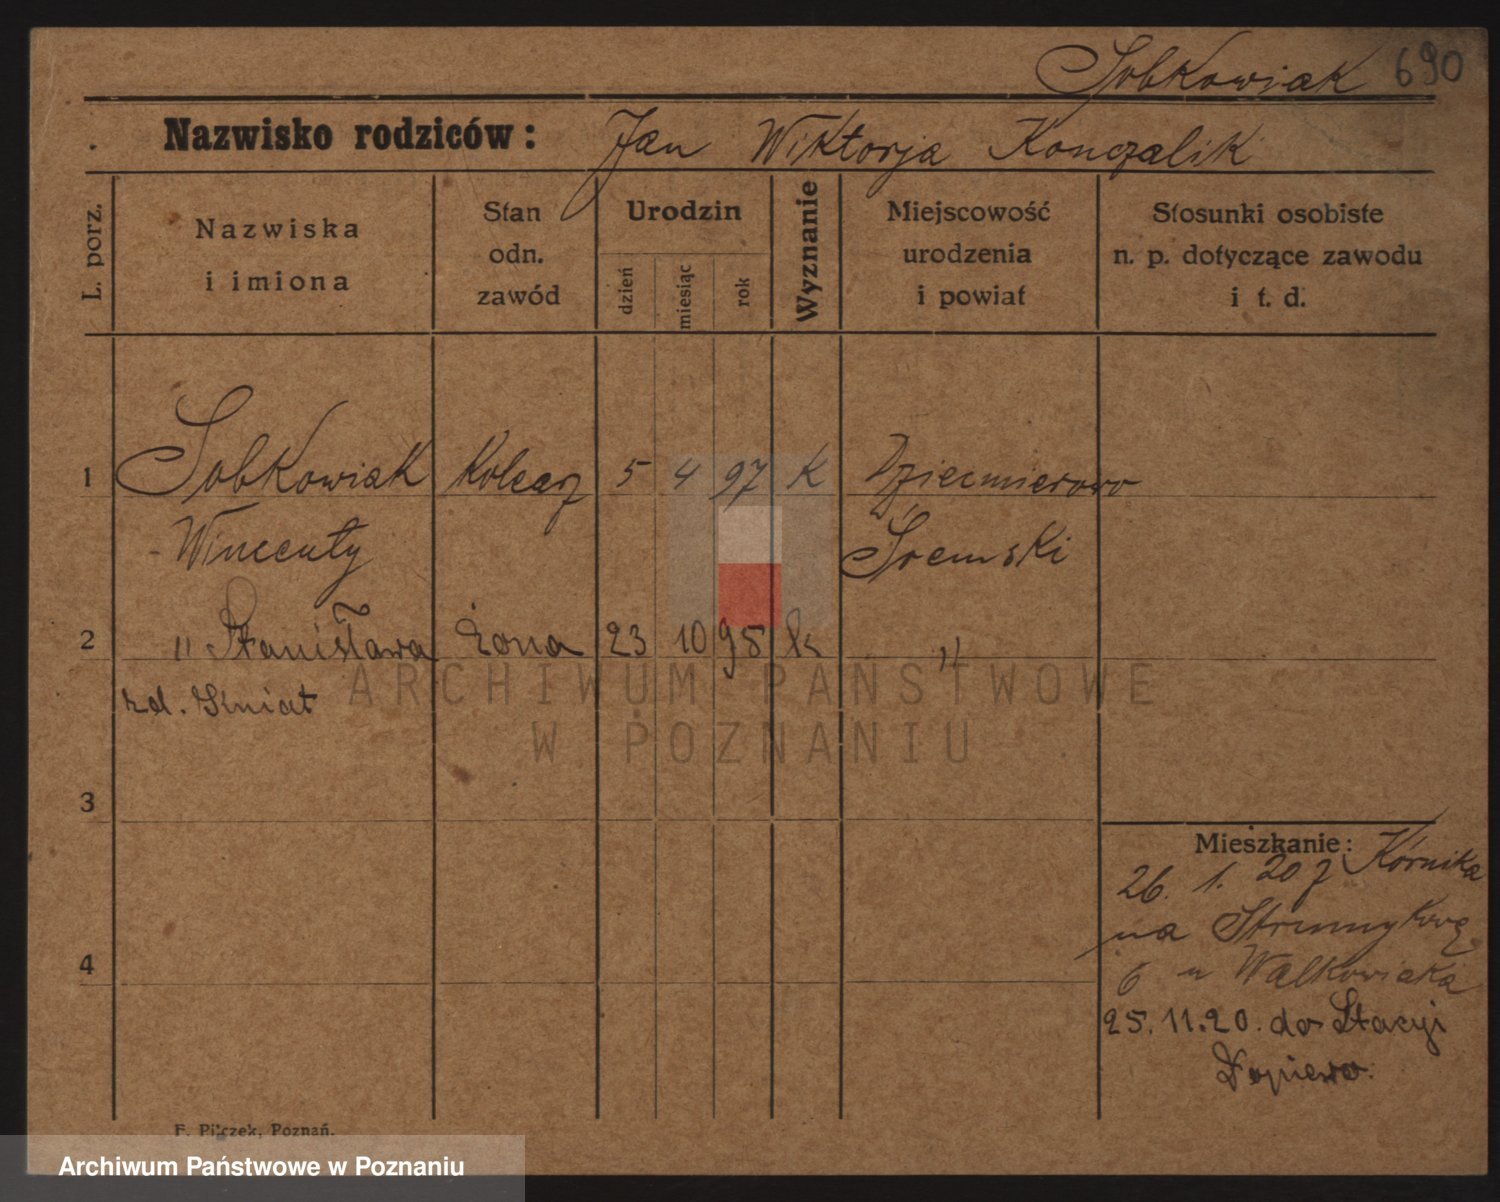 Sobkowiak 690
Nazwisko rodziców: Jan Wiktorja Konczalik
L. porz.
Nazwiska
i imiona
Stan
odn.
zawód
Urodzin
dzień
miesiąc
rok
Wyznanie
Miejscowość
urodzenia
i powiat
Stosunki osobiste
n. p. dotyczące zawodu
i t. d.
1 Sobkowiak 5 4 97 K Dziecmierowo
Wincenty Śremski
2 " Stanisława żona 23 10 95 k "
3
Mieszkanie:
26. 1. 20 z Kórnika
na Strumykową
6 u Walkowiaka
4
25. 11. 20. do Stacyi
F. Pilczek, Poznań.
ARCHIWUM PAŃSTWOWE
W POZNANIU
Archiwum Państwowe w Poznaniu